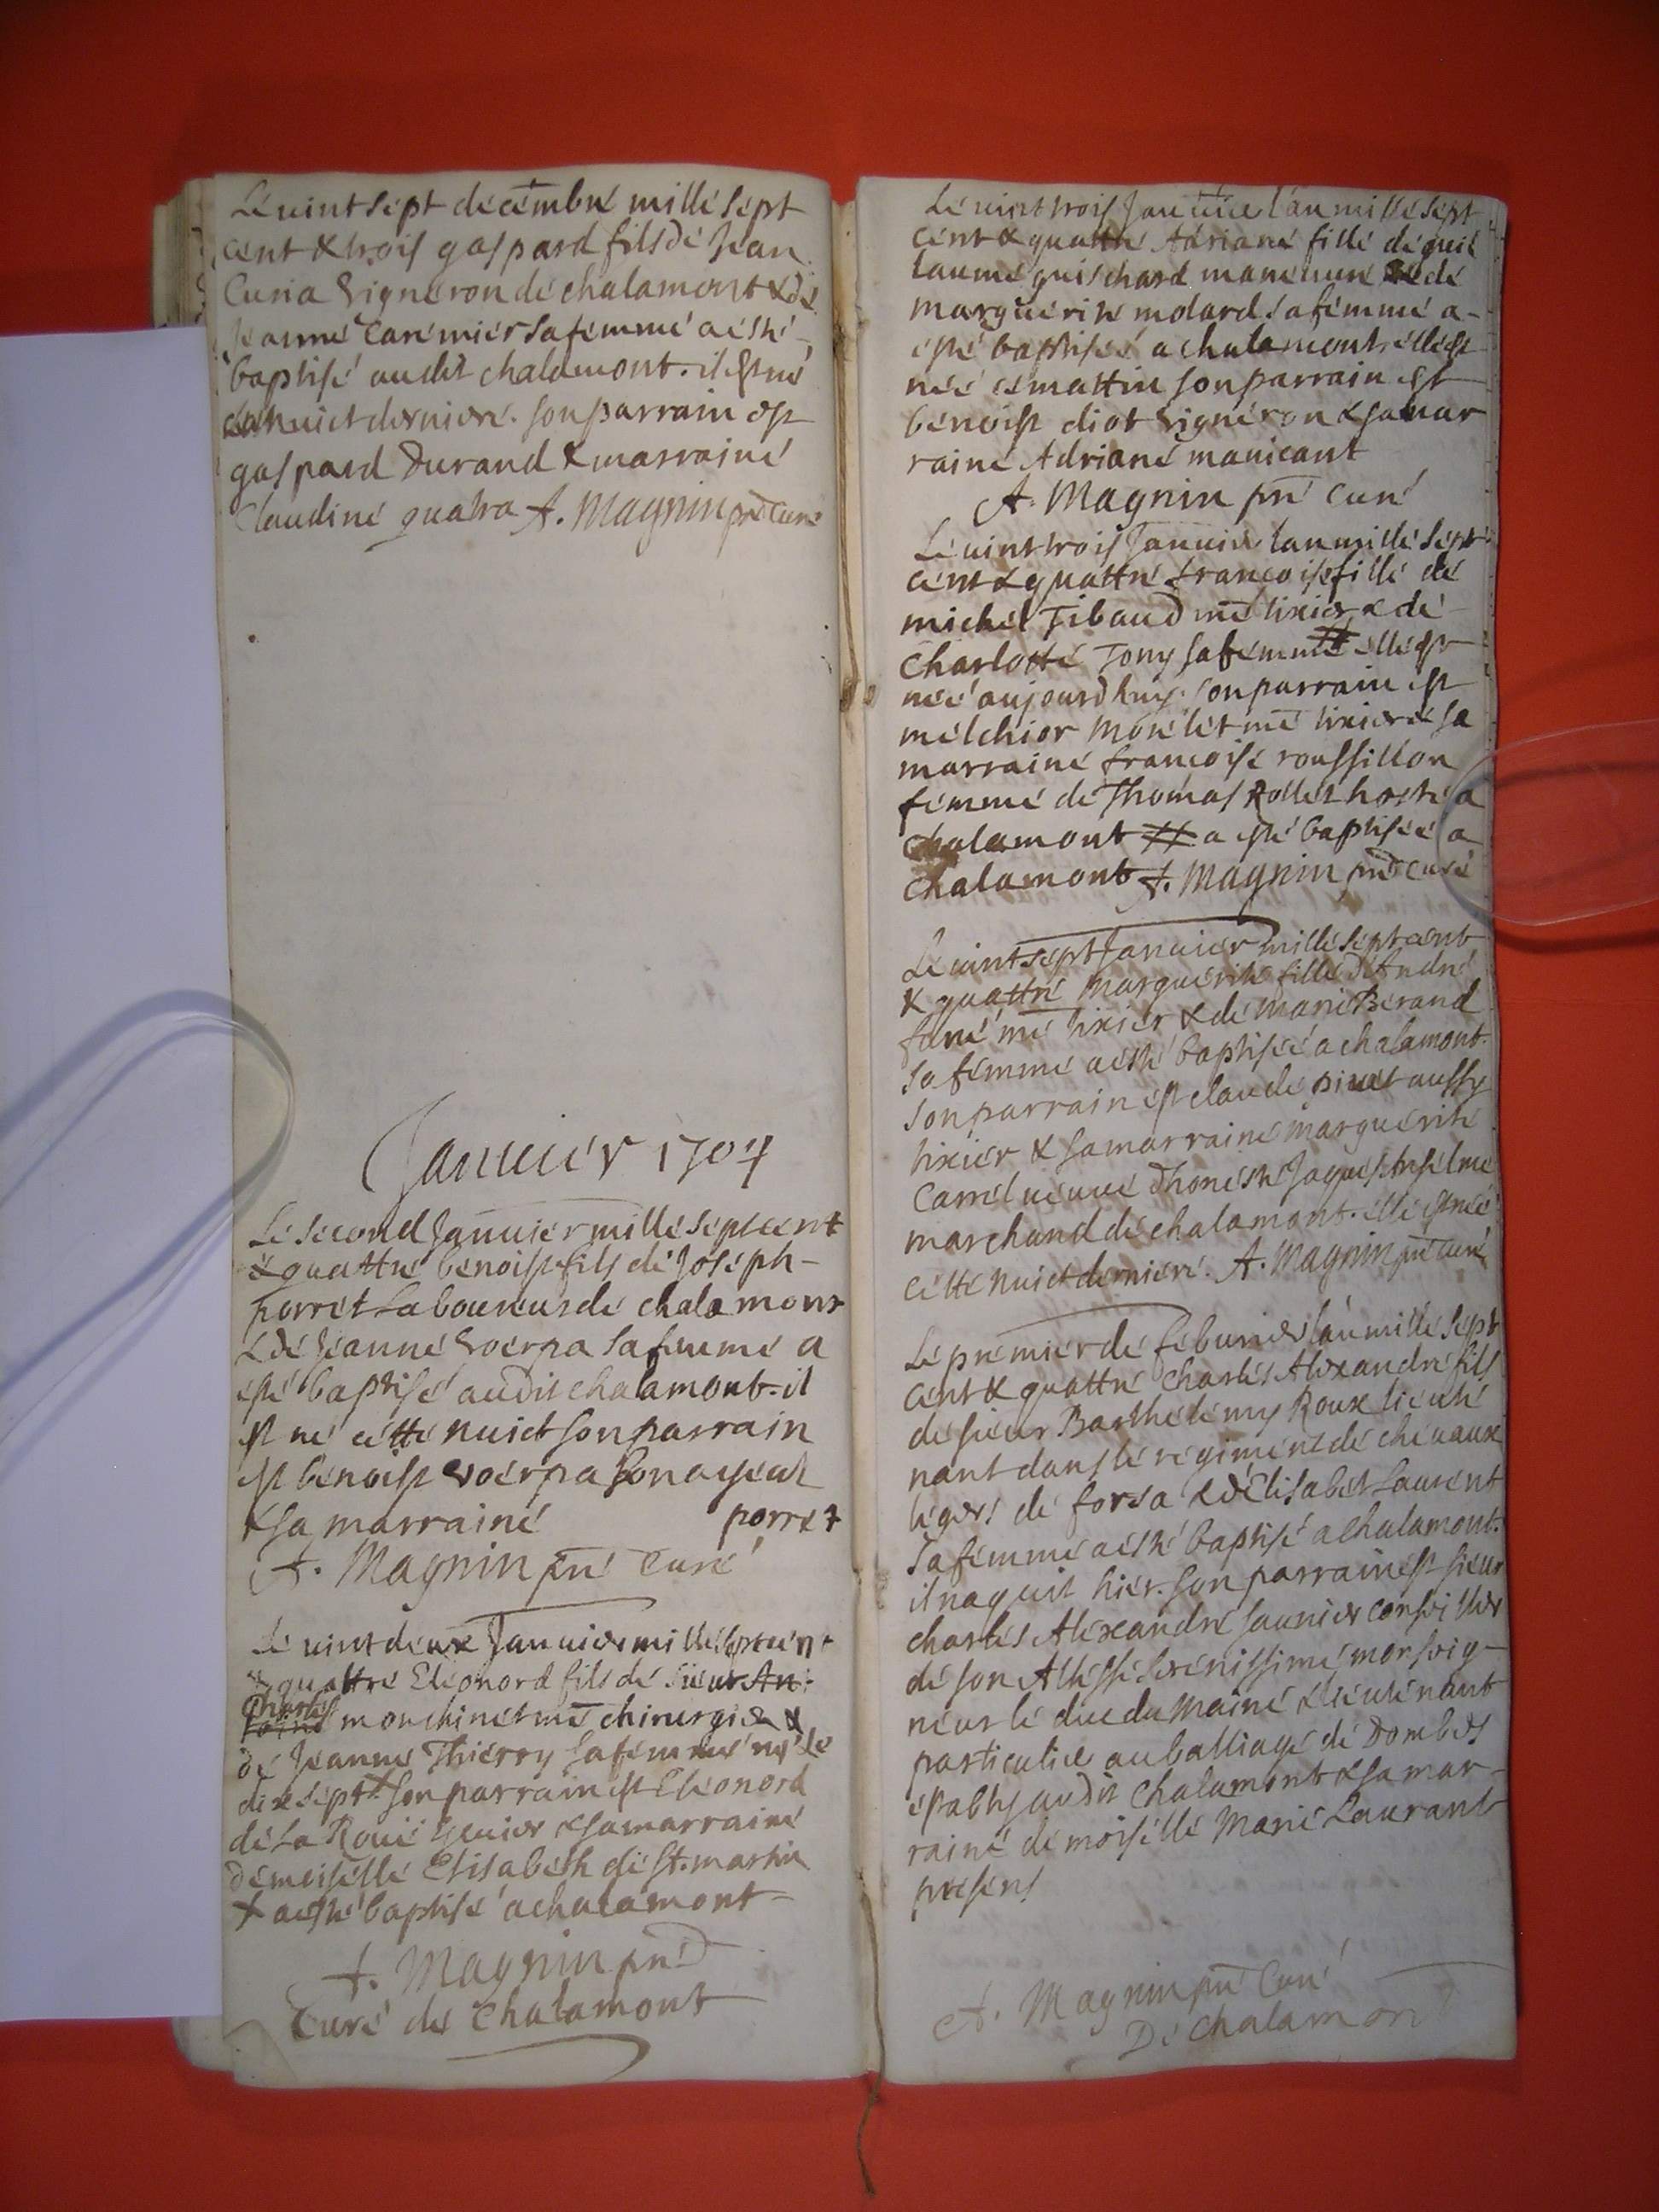 Lé uint sépt décémbré millé sépt
cént & trois gaspard fils dé Jéan
Curia Vignéron dé chalamont & dé
Jéanné Carémiér sa fémmé a ésté
baptisé audit chalamont. il ést né
la nuict derniéré. son parrain ést
gaspard Durand & marrainé
Claudiné quatra A. Magnin pré curé
Januiér 1704
Lé sécond Januiér millé sépt cént
& quattré bénoist fils dé Joséph
porrét Labouréur dé chalamont
& dé Jéanné Voérpa sa fémmé a
ésté baptisé audit chalamont. il
ést né cétté nuict son parrain
ést bénoist Voérpa son ayéul
& sa marrainé porrét
A. Magnin pré Curé
Lé uint déux Januiér millé sépt cént
& quattré Eléonord fils dé siéur An
Charlés
toiné monchinét mé chirurgién &
dé Jéanné Thiérry sa fémmé né lé
dix sépt + son parrain ést Eléonord
dé La Roüé & sa marrainé
démoiséllé Elisabéth dé St. martin
+ a ésté baptisé a chalamont
A. Magnin pré
Curé dé Chalamont
Lé uint trois Januiér l'an millé sépt
cént & quattré Adriané fillé dé guil
laumé guischard & dé
marguérité molard sa fémmé a
ésté baptiséé a chalamont éllé ést
néé cé mattin son parrain ést
bénoist diot Vignéron & sa mar
rainé Adriané manicant
A. Magnin pré curé
Lé uint trois Januiér l'an millé sépt
cént & quattré françoisé fillé dé
michél Tibaud mé tixiér & dé
Charlotté Tony sa fémmé # éllé ést
néé aujourd huy. son parrain ést
mélchior morélét mé tixiér & sa
marrainé françoisé roussillon
fémmé dé Thomas Rollét hosté a
chalamont # a ésté baptiséé a
chalamont A. Magnin pré curé
Lé uint sépt Januiér millé sépt cént
& quattré Marguérité fillé d'André
mé tixiér & dé marié Bérand
sa fémmé a ésté baptiséé a chalamont.
son parrain ést claudé piuét aussy
tixiér & sa marrainé marguérité
Carrél uéuué d'honésté Jaqués Ansélmé
marchand dé chalamont. éllé ést néé
cétté nuict dérniéré. A. Magnin pré curé
Lé prémiér dé féburiér l'an millé sépt
cént & quattré Charlés Aléxandré fils
dé siéur Barthélémy Roux liéuté
nant dans lé régimént dé chéuaux
légérs dé forsa & d'Elisabét Laurént
sa fémmé a ésté baptisé a chalamont.
il naquit hiér. son parrain ést siéur
charlés Aléxandré saunиér conséillér
dé son Altéssé Sérénissimé monséig
néur lé duc du Mainé & liéuténant
particuliér au balliagé dé Dombés
éstably audit Chalamont & sa mar
rainé démoiséllé Marié Laurant
présens
A. Magnin pré Curé
Dé chalamont